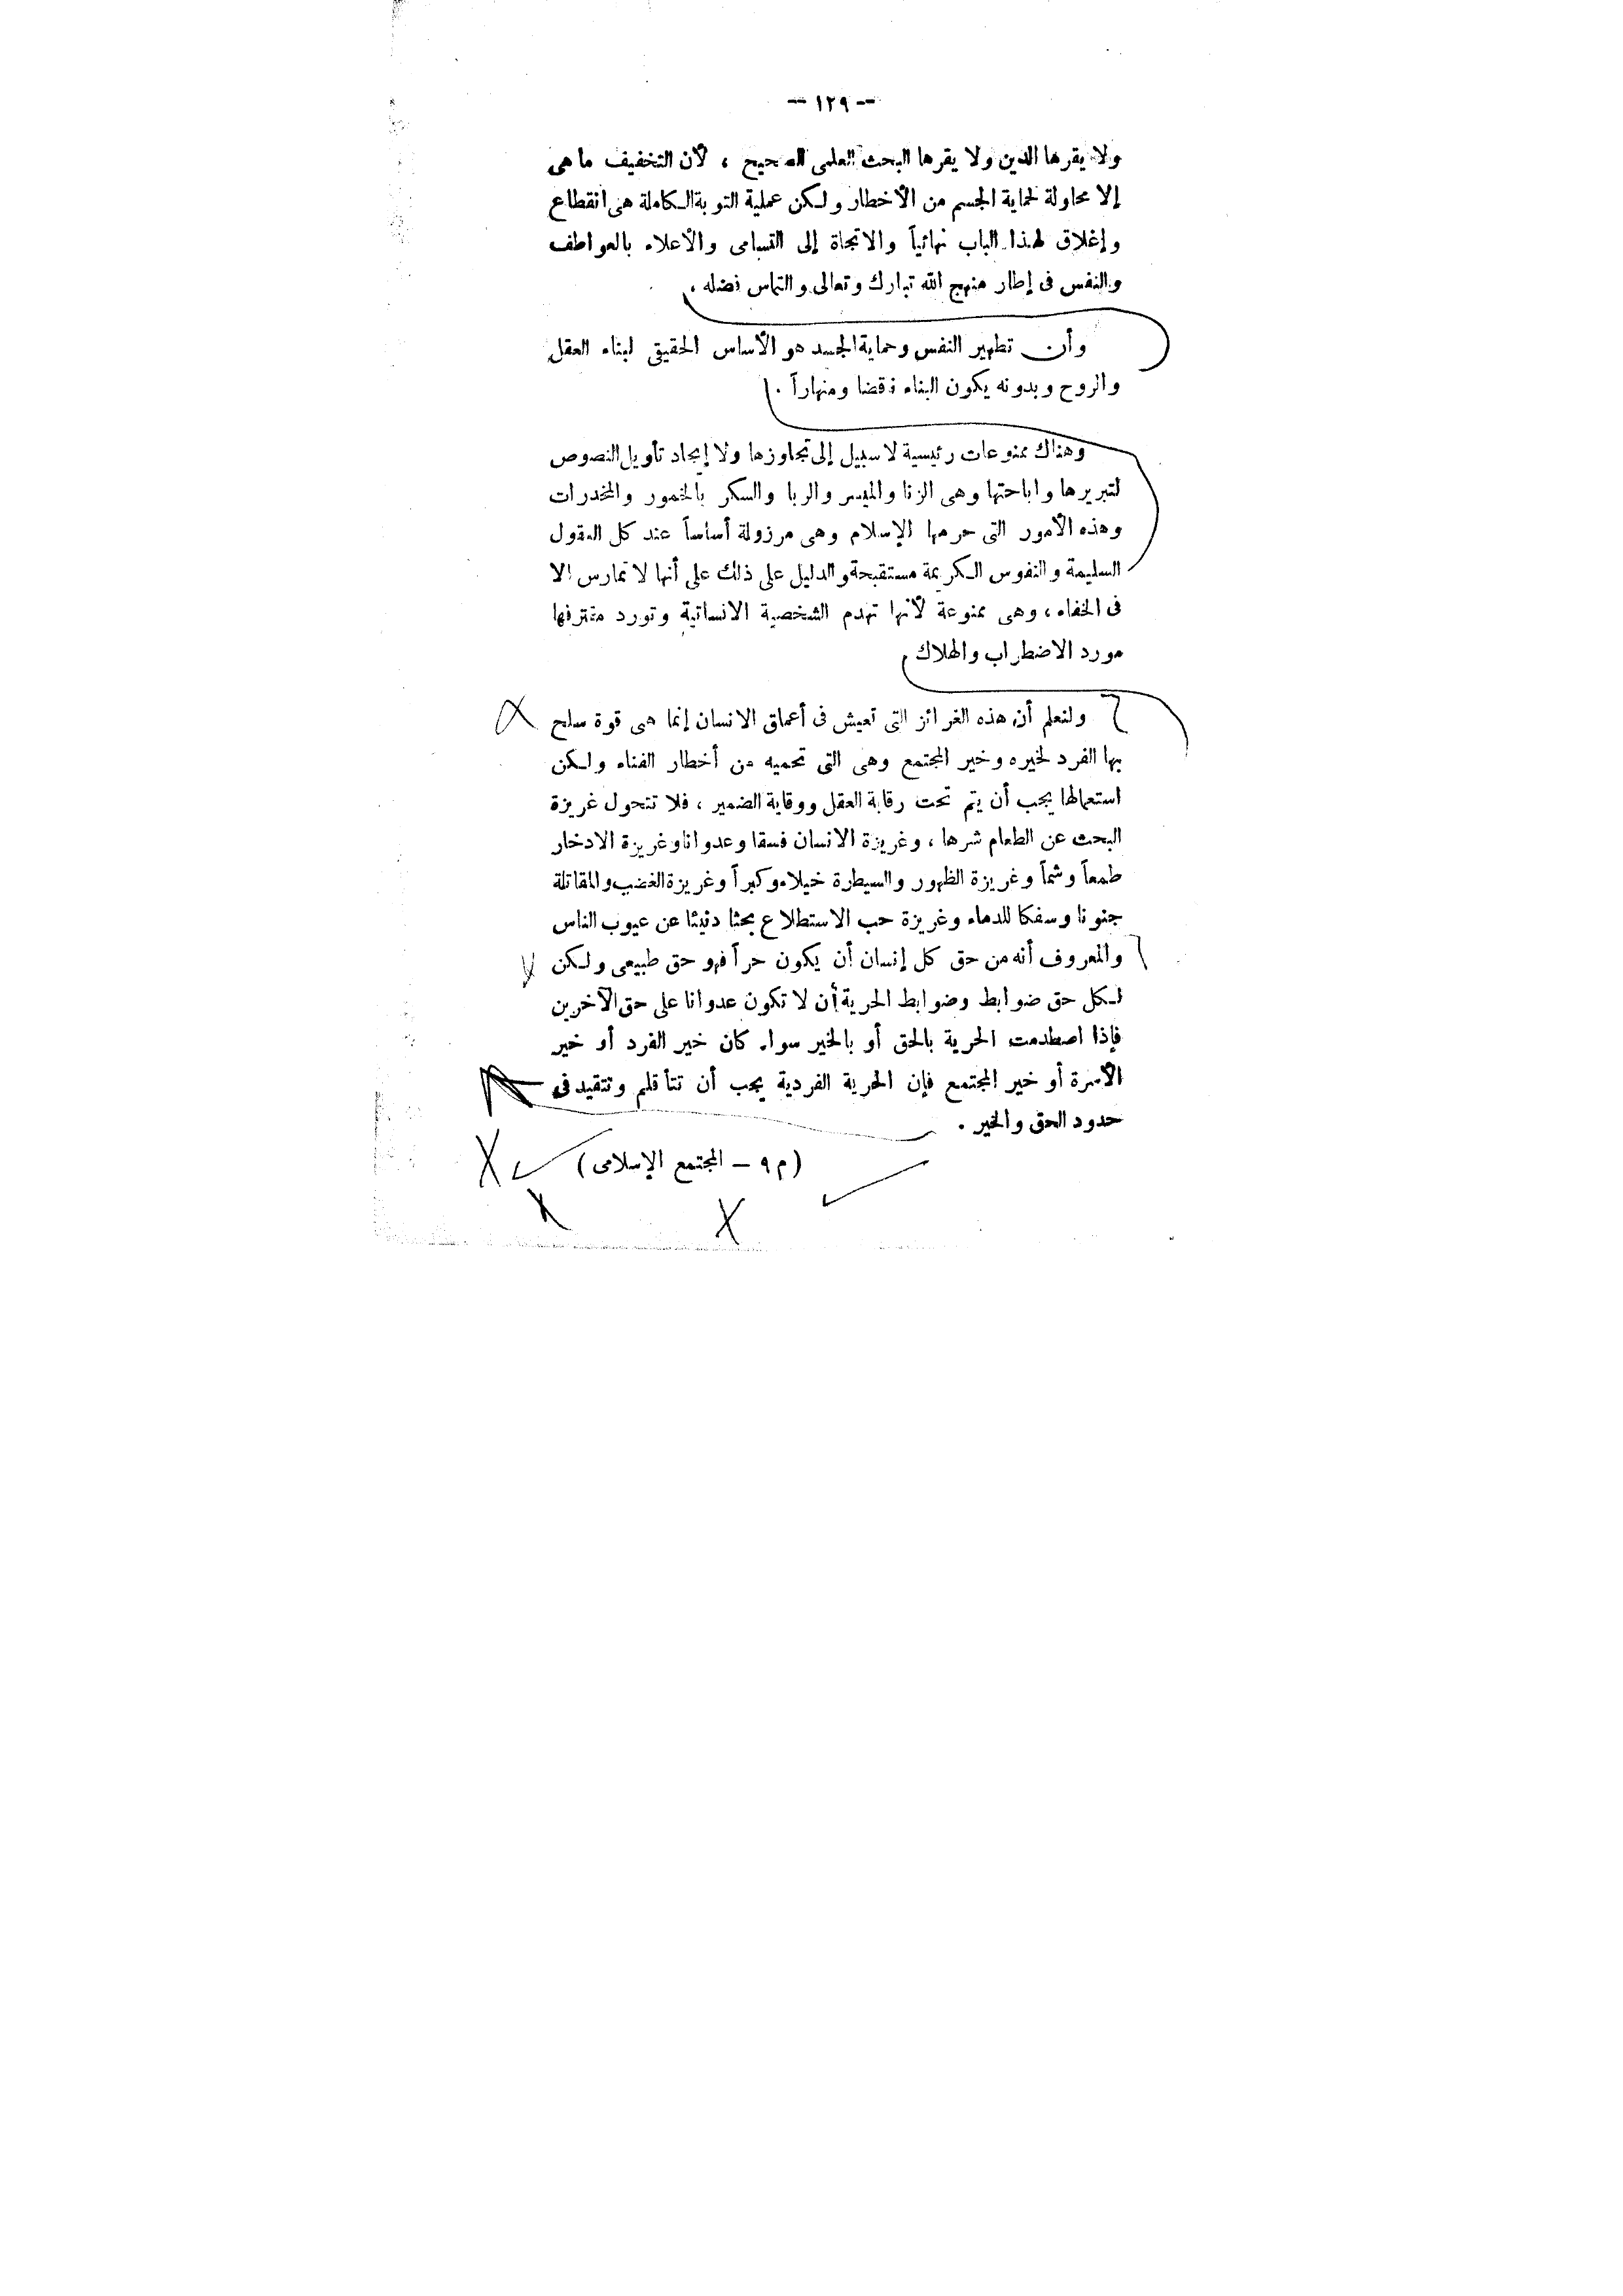 -- ١٢٩ --
ولا يقرها الدين ولا يقرها البحث العلمى الصحيح ، لأن التخفيف ما هى
إلا محاولة لحماية الجسم من الأخطار ولكن عملية التوبة الكاملة هى انقطاع
وإغلاق لهذا الباب نهائياً والاتجاة إلى التسامى والأعلاء بالعواطف
والنفس فى إطار منهج الله تبارك وتعالى والتماس فضله .
وأن تطهير النفس وحماية الجسد هو الأساس الحقيقى لبناء العقل
والروح وبدونه يكون البناء نقضا ومنهاراً .
وهناك ممنوعات رئيسية لا سبيل إلى تجاوزها ولا إيجاد تأويل النصوص
لتبريرها واباحتها وهى الزنا والميسر والربا والسكر بالخمور والمخدرات
وهذه الأمور التى حرمها الإسلام وهى مرزولة أساساً عند كل العقول
السليمة والنفوس الكريمة مستقبحة والدليل على ذلك على أنها لا تمارس إلا
فى الخفاء ، وهى ممنوعة لأنها تهدم الشخصية الانسانية وتورد مقترفها
مورد الاضطراب والهلاك .
ولنعلم أن هذه الغرائز التى تعيش فى أعماق الانسان إنما هى قوة سلح
بها الفرد لخيره وخير المجتمع وهى التى تحميه من أخطار الفناء ولكن
استعمالها يجب أن يتم تحت رقابة العقل ووقاية الضمير ، فلا تتحول غريزة
البحث عن الطعام شرها ، وغريزة الانسان فسقا وعدوانا وغريزة الادخار
طمعاً وشماً وغريزة الظهور والسيطرة خيلاء وكبراً وغريزة الغضب والمقاتلة
جنونا وسفكا للدماء وغريزة حب الاستطلاع بحثا دنيئا عن عيوب الناس
والمعروف أنه من حق كل إنسان أن يكون حراً فهو حق طبيعى ولكن
لكل حق ضوابط وضوابط الحرية أن لا تكون عدوانا على حق الآخرين
فإذا اصطدمت الحرية بالحق أو بالخير سواء كان خير الفرد أو خير
الأسرة أو خير المجتمع فإن الحرية الفردية يجب أن تتأقلم وتتقيد فى
حدود الحق والخير .
(م ٩ – المجتمع الإسلامى)